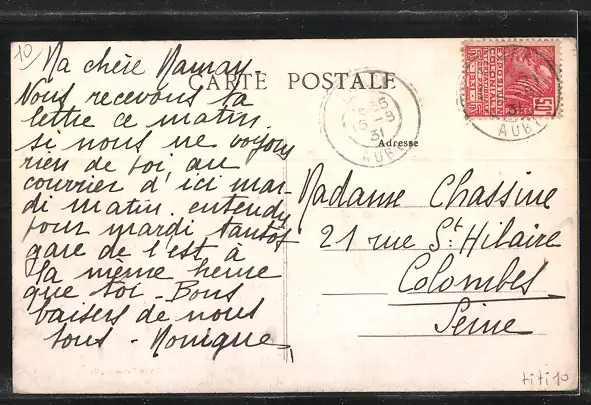 10
Ma chère Maman.
CARTE POSTALE
Nous recevons ta
lettre ce matin
si nous ne voyons
rien de toi au
courrier d'ici mar-
di matin. entendu
pour mardi tantôt
gare de l'est à
la même heure
que toi - Bons
baisers de nous
tous - Monique
Adresse
Madame Chassine
21 rue St Hilaire
Colombes
Seine
EXPOSITION
COLONIALE
INTERNATIONALE
POSTES
50
31
AUBE
31
AUBE
titi10